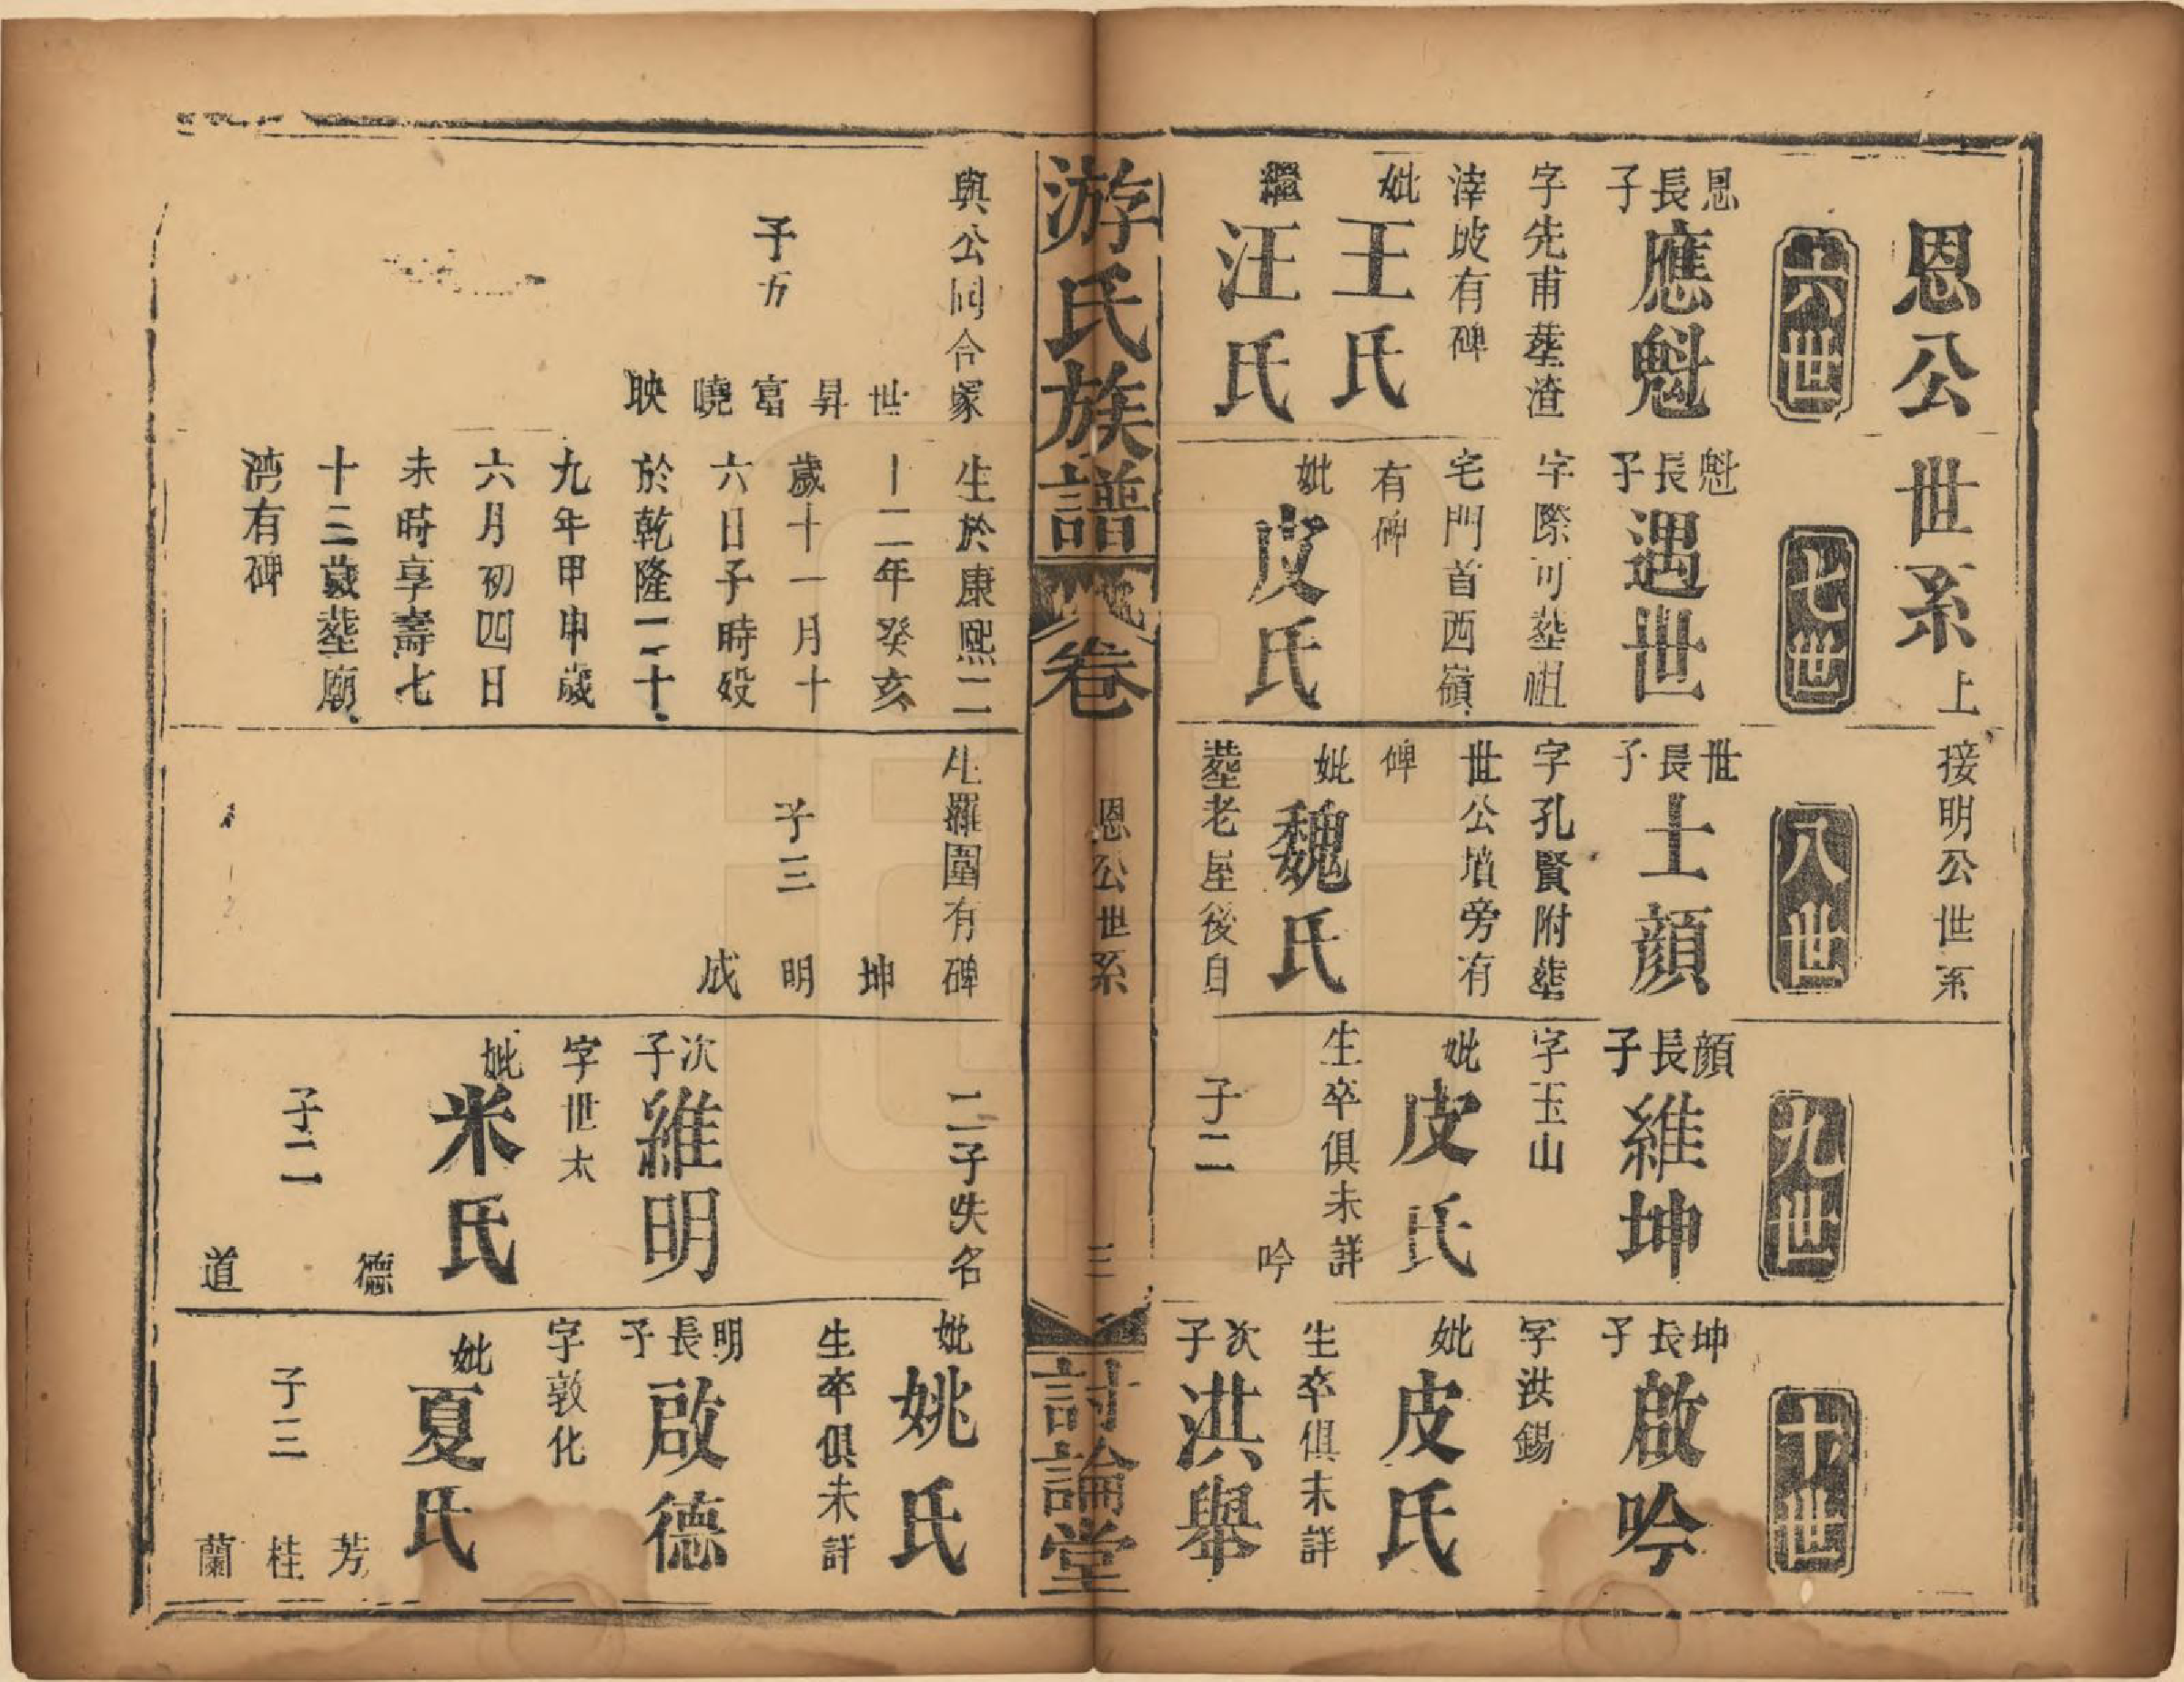 恩公世系上 接明公世系
六世
恩長子 應魁
字先甫塟渣
滓坡有碑
妣王氏
繼汪氏
七世
魁長子 遇世
字際可塟祖
宅門首西嶺
有碑
妣皮氏
八世
世長子 士顔
字孔賢附塟
世公墳旁有
碑
妣魏氏
塟老屋後自
九世
顔長子 維坤
字玉山
妣皮氏
生卒俱未詳
子二 吟
十世
坤長子 啟吟
字洪錫
妣皮氏
生卒俱未詳
次子 洪舉
游氏族譜
卷
恩公世系
三
討論堂
與公同合冢
子五
世
昇
富
曉
映
生於康熙二
十二年癸亥
歲十一月十
六日子時殁
於乾隆二十
九年甲申歲
六月初四日
未時享壽七
十二歲塟廟
湾有碑
生羅圍有碑
子三
坤
明
成
二子失名
次子 維明
字世太
妣米氏
子二
德
道
妣姚氏
生卒俱未詳
明長子 啟德
字敦化
妣夏氏
子三
芳
桂
蘭